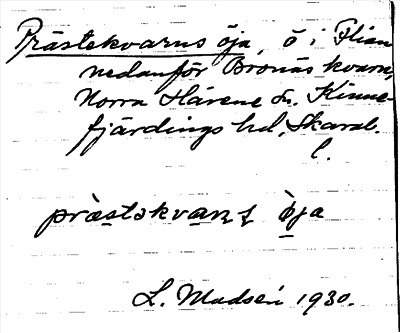 Prästekvarns öja, ö i Flian
nedanför Bronäs kvarn,
Norra Härene sn. Kinne-
fjärdings hd, Skarab.
l.
präst​əkvan̠ṣ ö̀ja
L. Madsén 1930.